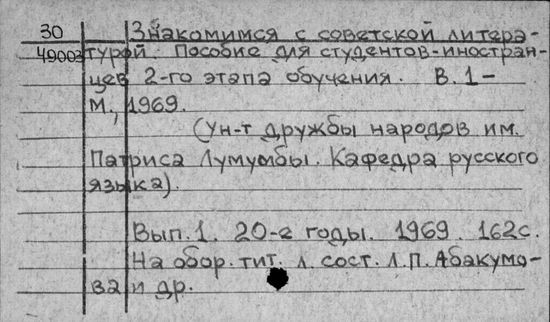 30 Знакомимся с советской литера-
49003 турой. Пособие для студентов-иностран-
цев 2-го этапа обучения. В. 1-
М., 1969.
(Ун-т дружбы народов им.
Патриса Лумумбы. Кафедра русского
языка).
Вып. 1. 20-е годы. 1969. 162с.
На обор. тит. л. сост. Л.П. Абакумо-
ва и др.